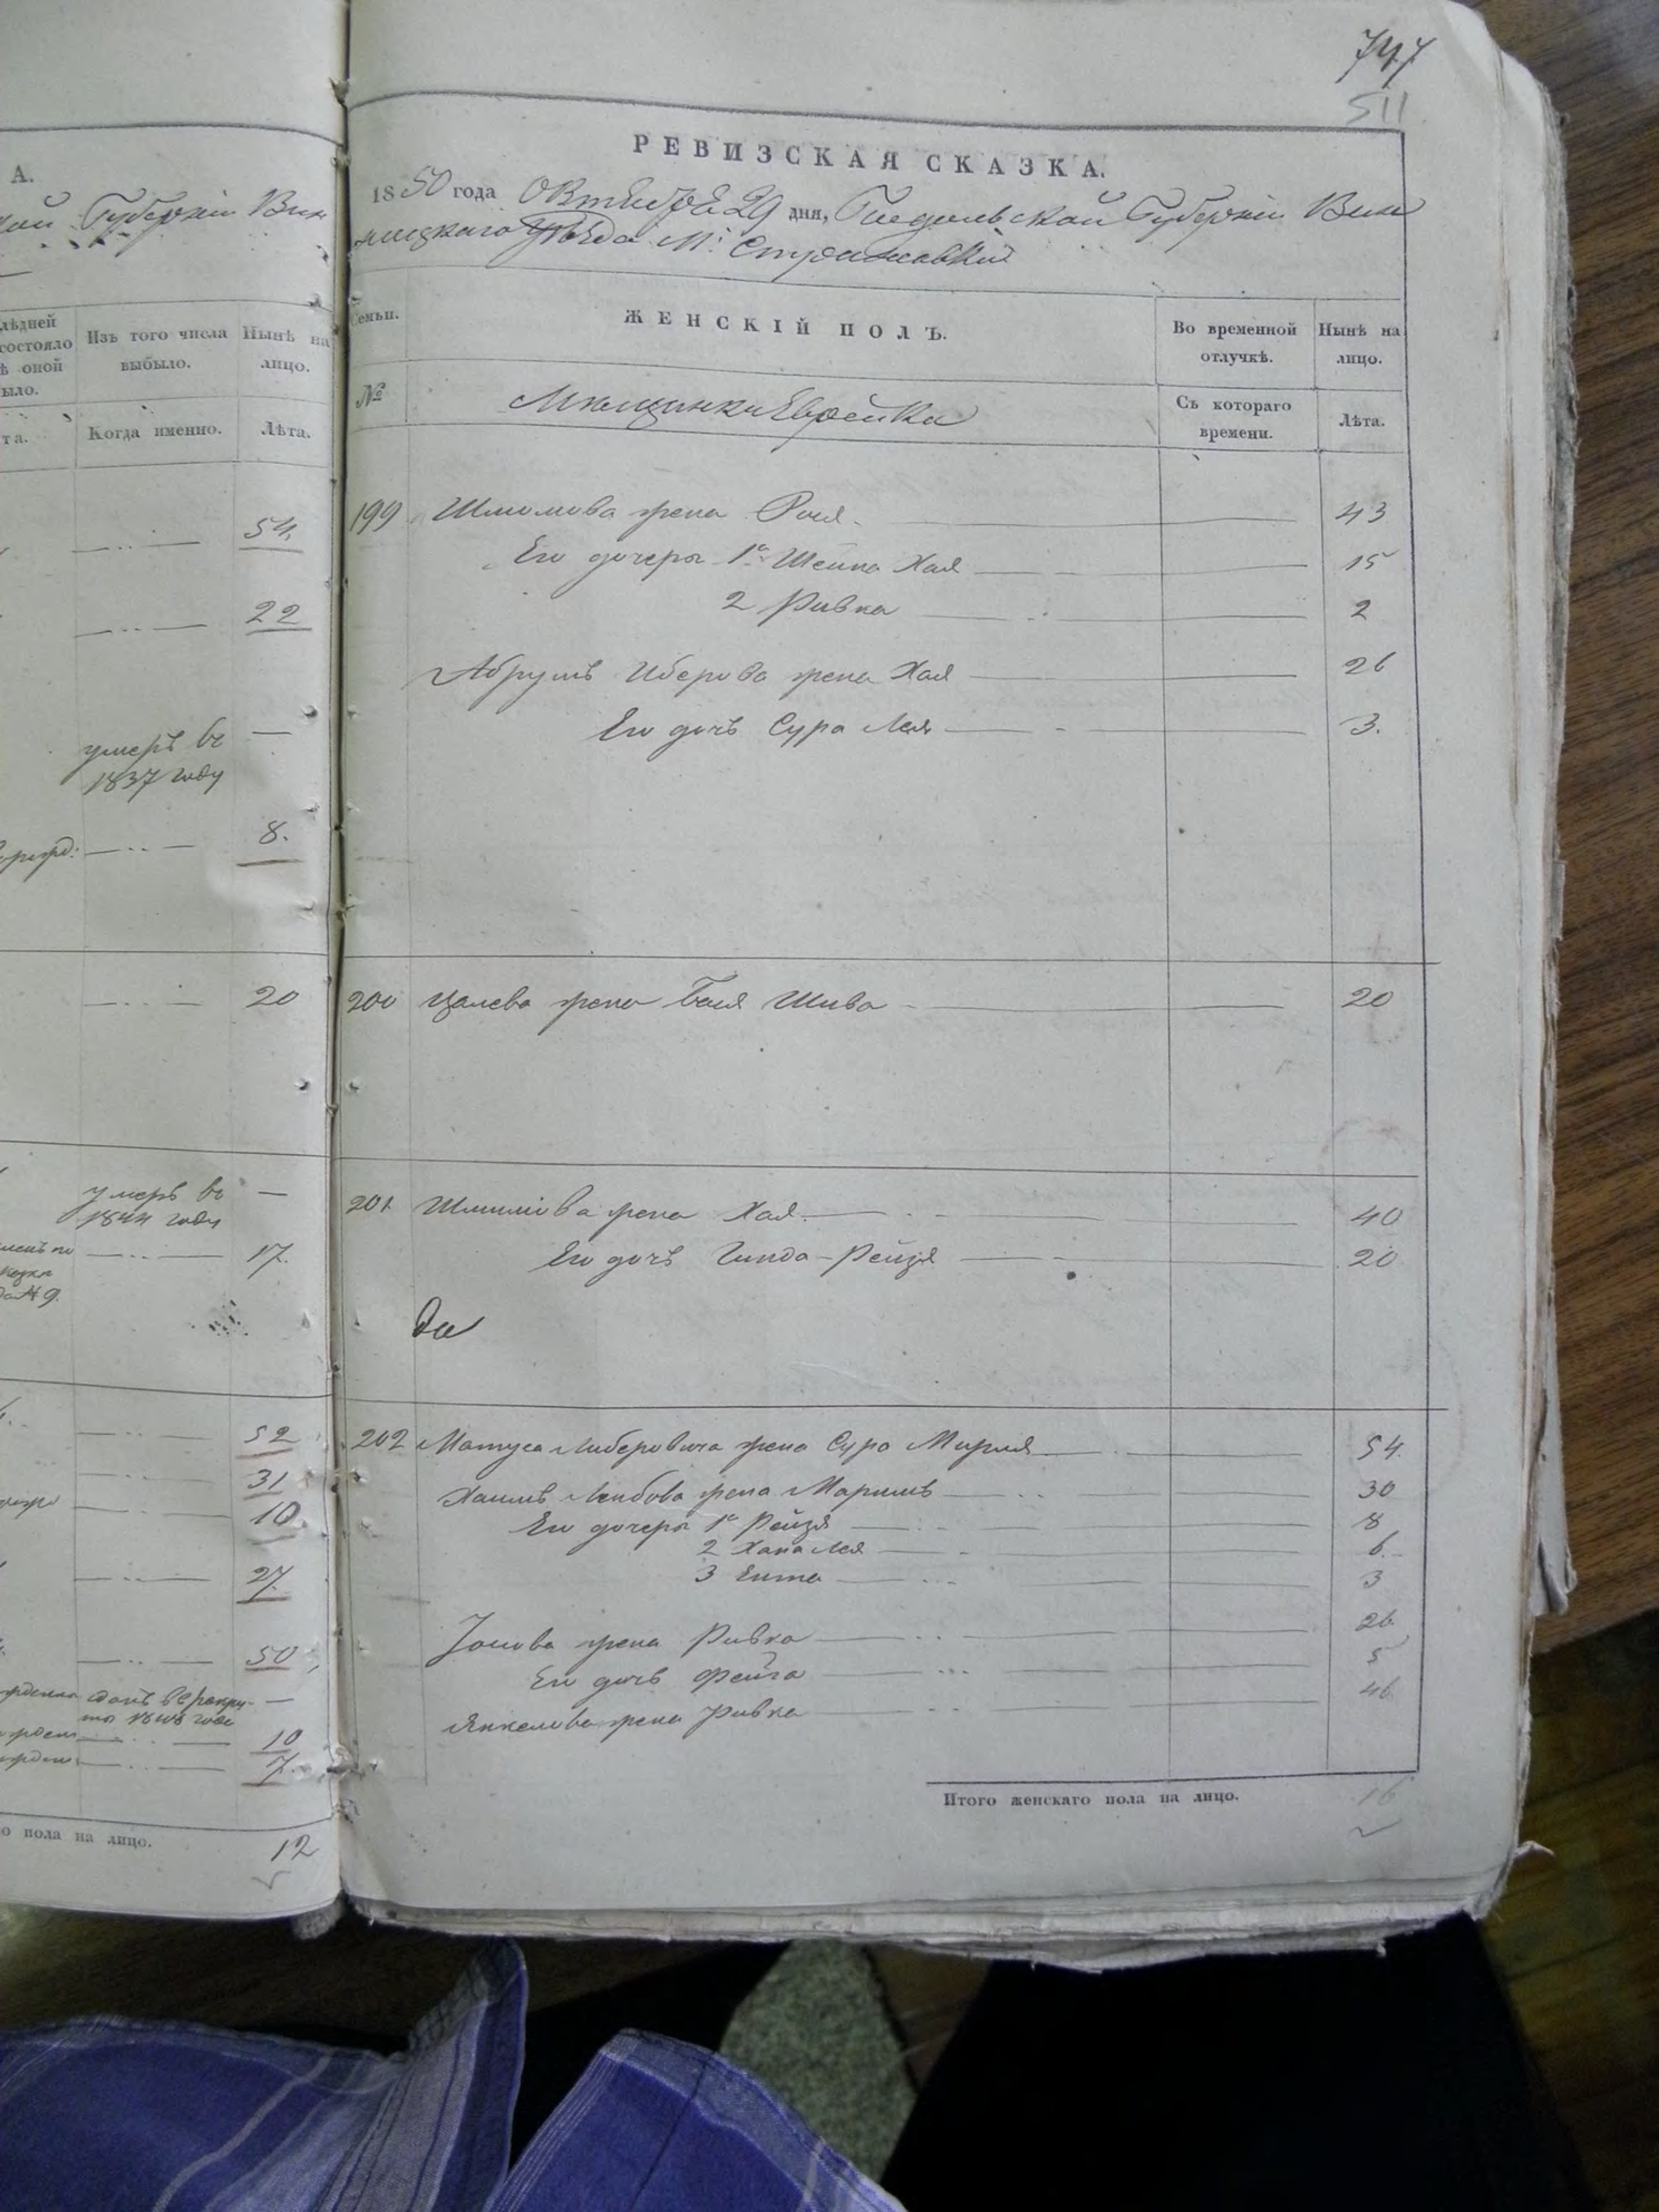 А.
Губерніи Вин
лѣдней
состояло
ѣ оной
ыло.
Изъ того числа выбыло.
Нынѣ на лицо.
та.
Когда именно.
Лѣта.
54
22
умеръ въ —
1837 году
8.
20
умеръ въ —
1844 году
17.
№ 9.
52
31
10
27
50
10
7.
о пола на лицо.
12
747
511
РЕВИЗСКАЯ СКАЗКА.
1850 года Октября 29 дня, Подольской Губерніи Вин
ницкаго Уѣзда М: Стрижавки
Семьи.
ЖЕНСКІЙ ПОЛЪ.
Во временной отлучкѣ.
Нынѣ на лицо.
№
Мѣщанки Еврейки
Съ котораго времени.
Лѣта.
199 Шлиомова жена Рося — 43
Его дочеры 1я Шейна Хая — 15
2 Ривка — 2
Абрумъ Иберова жена Хая — 26
Его дочь Сура Лея — 3.
200 Цалева жена Бася Шива — 20
201 Шлиомова жена Хая — 40
Его дочь Гинда-Рейзя — 20
да
202 Матуса Либеровича жена Сура Мирля — 54.
Хаимъ Лейбова жена Маримъ — 30
Его дочеры 1я Рейзя — 8
2 Хана Лея — 6.
3 Ента — 3
Іосіова жена Ривка — 26
Его дочь Фейга — 5
Янкелова жена Ривка — 46
Итого женскаго пола на лицо. 16